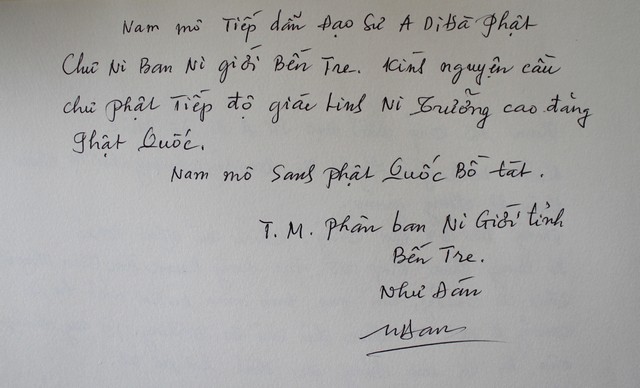 Nam mô Tiếp dẫn Đạo Sư A Di Đà Phật
Chư Ni Ban Ni giới Bến Tre. Kính nguyện cầu
chư phật Tiếp độ giác linh Ni Trưởng cao đăng
Phật Quốc.
Nam mô Sanh phật Quốc Bồ tát.
T. M. Phân ban Ni Giới tỉnh
Bến Tre.
Như Đán